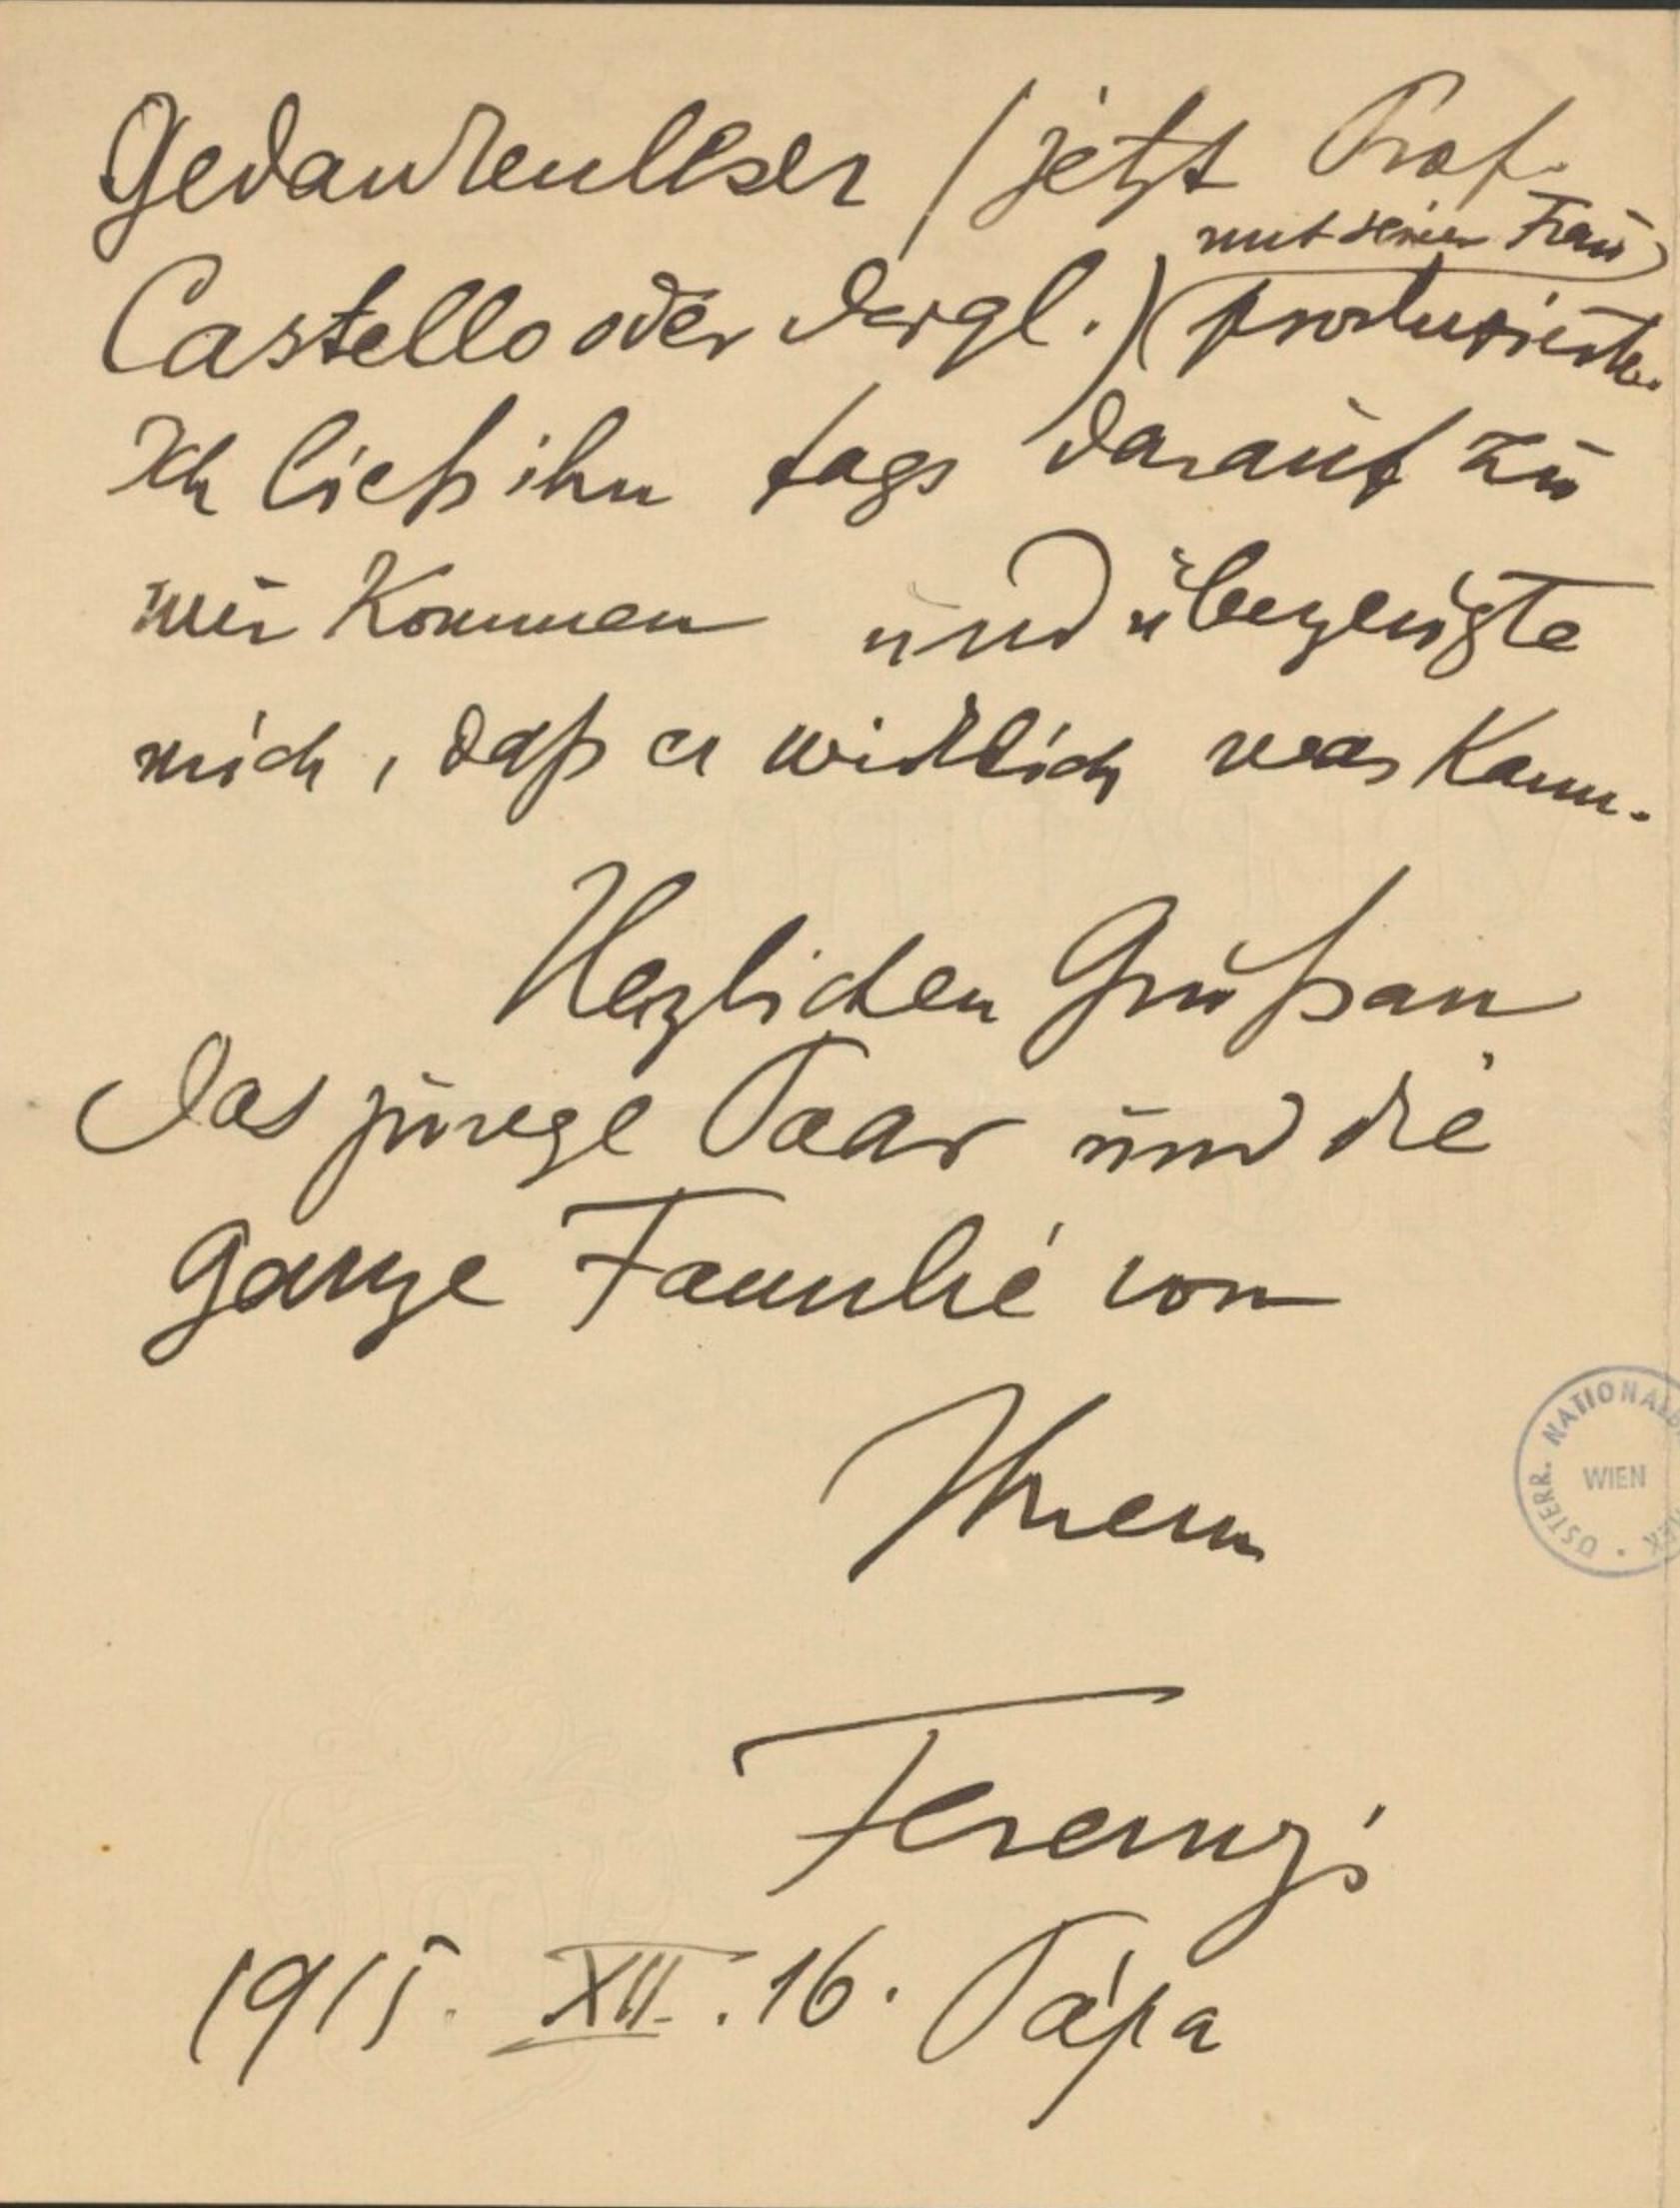 Gedankenleser (jetzt Prof.
Castello oder dergl.) (mit seiner Frau) produzierte.
Ich ließ ihn tags darauf zu
mir kommen und überzeugte
mich, daß er wirklich was kann.
Herzlichen Gruß an
das junge Paar und die
ganze Familie von
Ihrem
Ferenczi
1915. XII. 16. Pápa
ÖSTERR. NATIONALB
WIEN